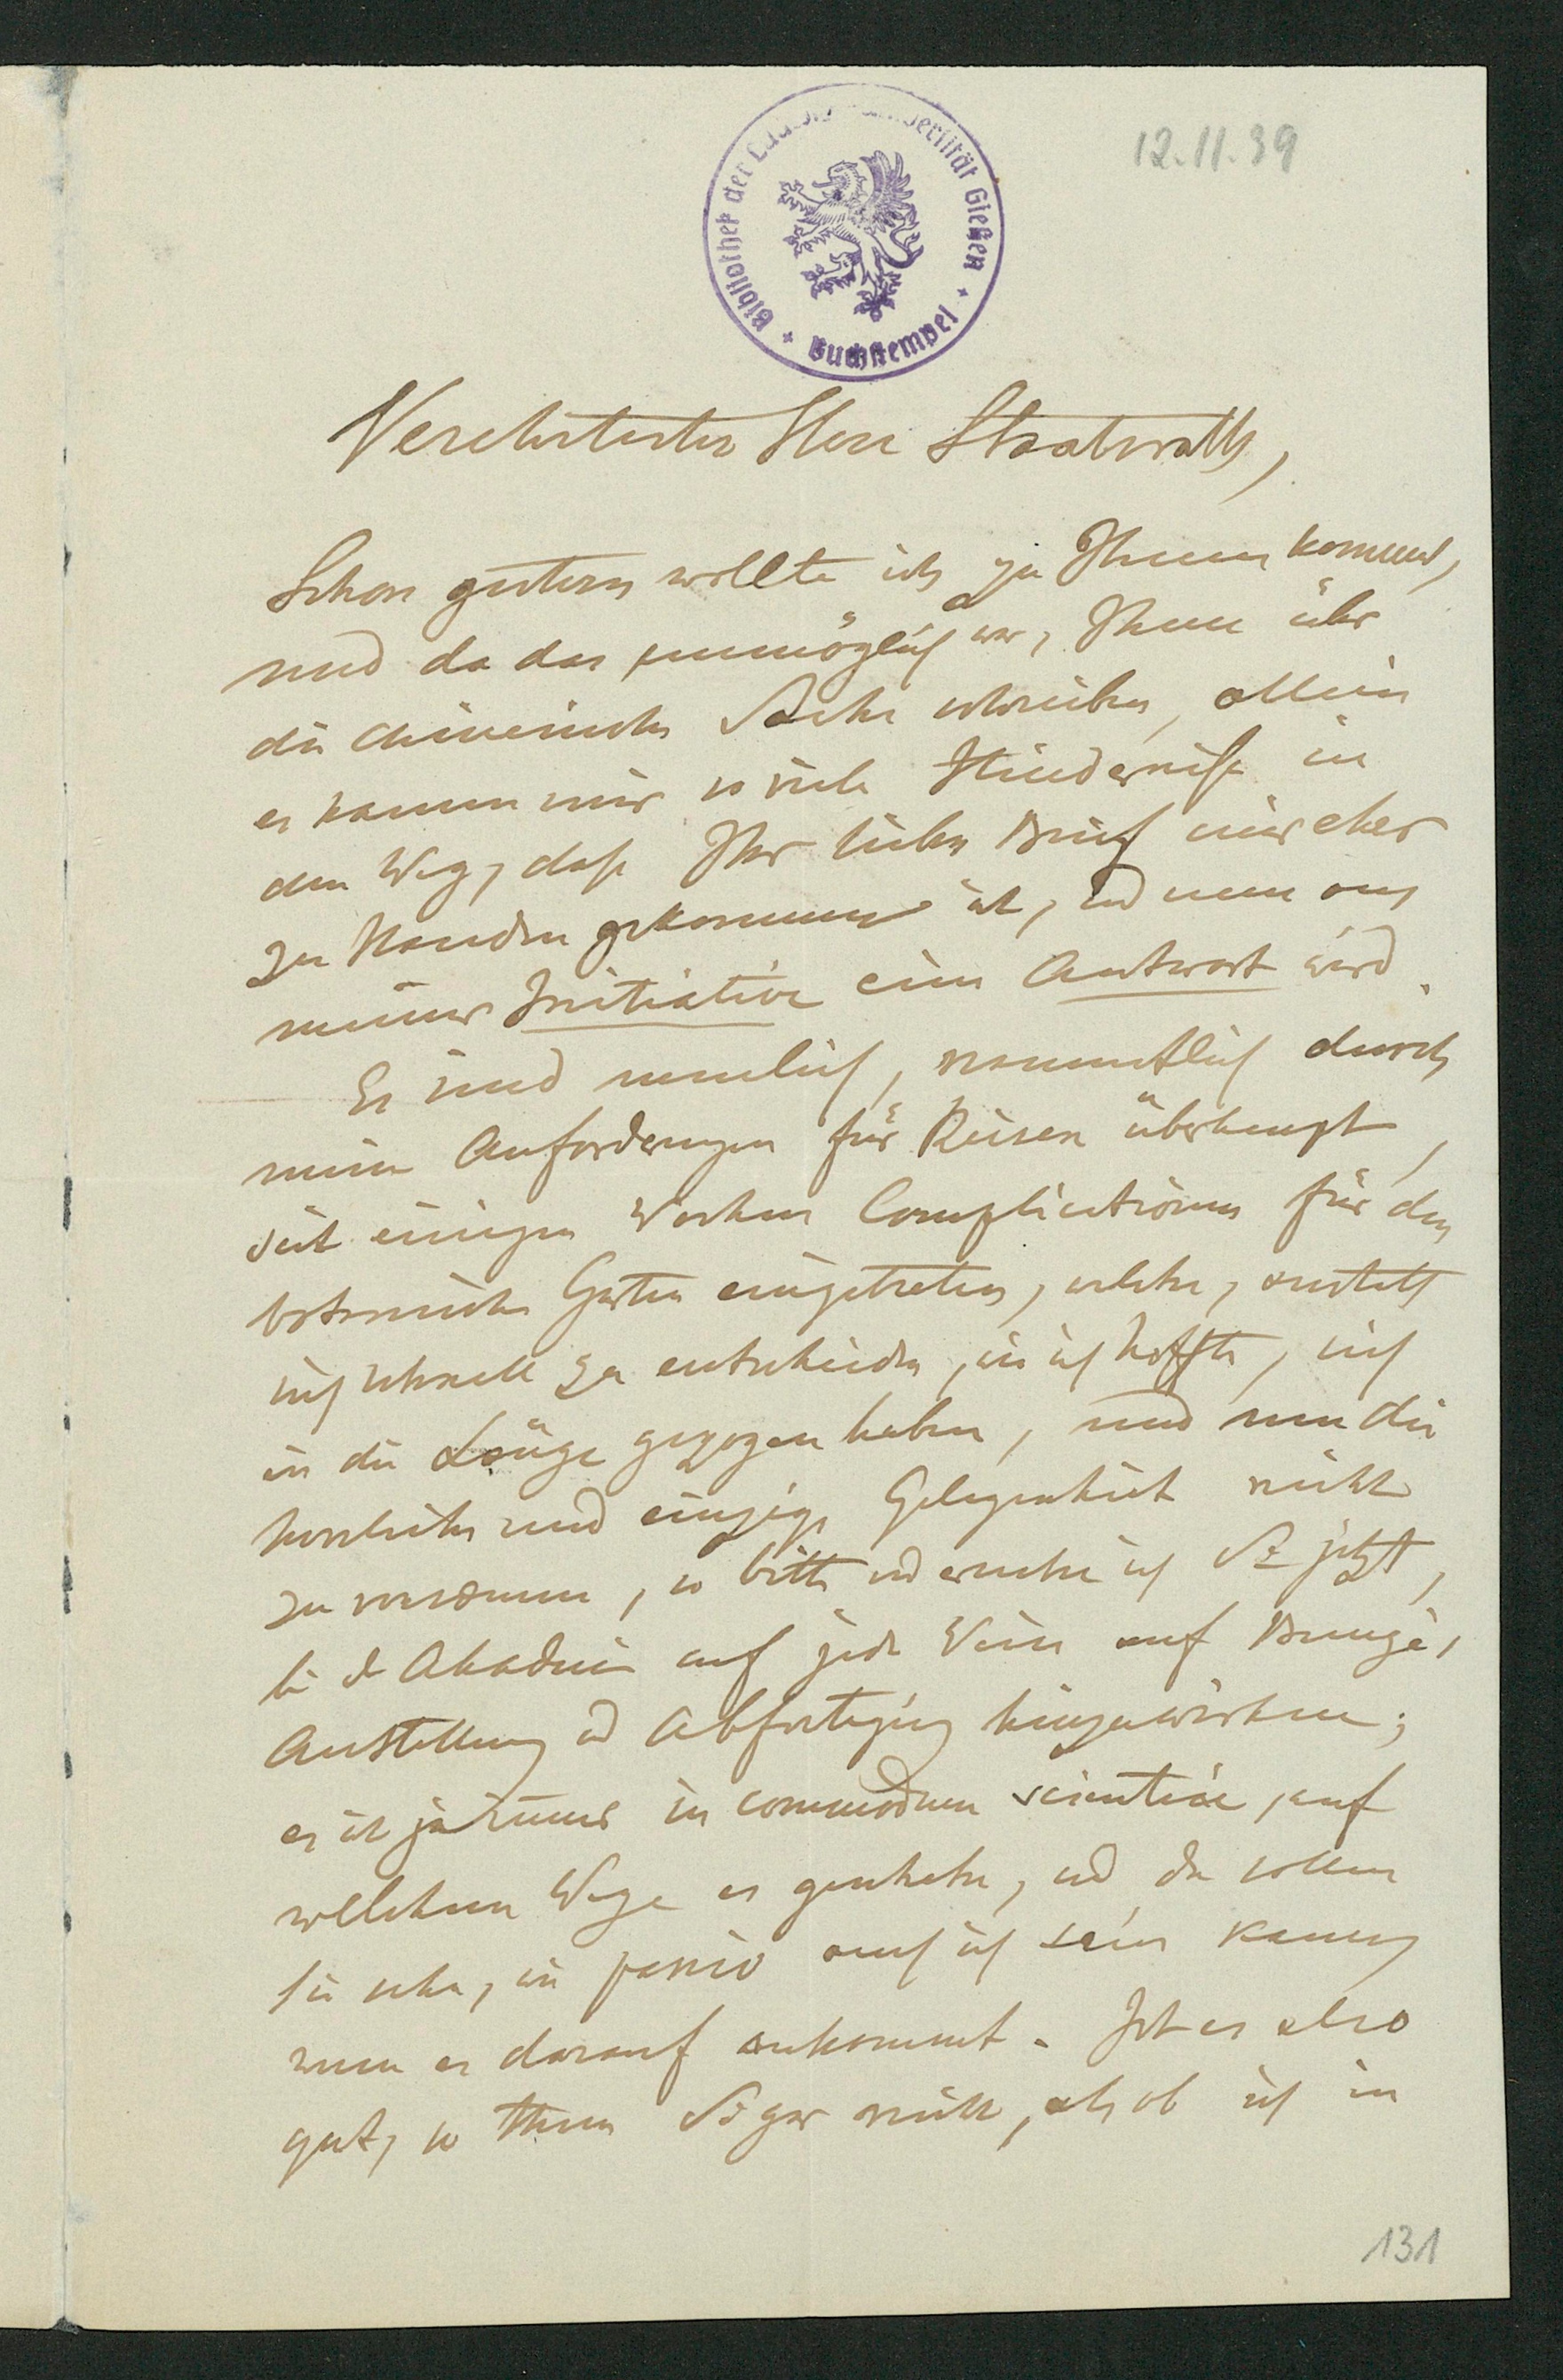 12.11.39
Bibliothek der Ludwigs-Universität Gießen + Buchstempel +
Verehrtester Herr Staatsrath,
Schon gestern wollte ich zu Ihnen kommen,
und da das unmöglich war, Ihnen über
die chinesische Sache schreiben, allein
es kamen mir so viele Hindernisse in
den Weg, daß Ihr lieber Brief mir eher
zu Handen gekommen ist, und nun aus
meiner Initiative eine Antwort wird.
Es sind nemlich, namentlich durch
meine Anforderungen für Reisen überhaupt,
seit einigen Wochen Complicationen für den
botanischen Garten eingetreten, welche, anstatt
sich schnell zu entscheiden, wie ich hoffte, sich
in die Länge gezogen haben, und um die
herrliche und einzige Gelegenheit nicht
zu versäumen, so bitte und ersuche ich Sie jetzt,
bei d Akademie auf jede Weise auf Bunge's
Anstellung und Abfertigung hinzuwirken;
es ist ja immer in commodum scientiae, auf
welchem Wege es geschehe, und da sollen
Sie sehen, wie passiv auch ich sein kann,
wenn es darauf ankommt. Ist es also
gut, so thun Sie gar nicht, als ob ich in
131